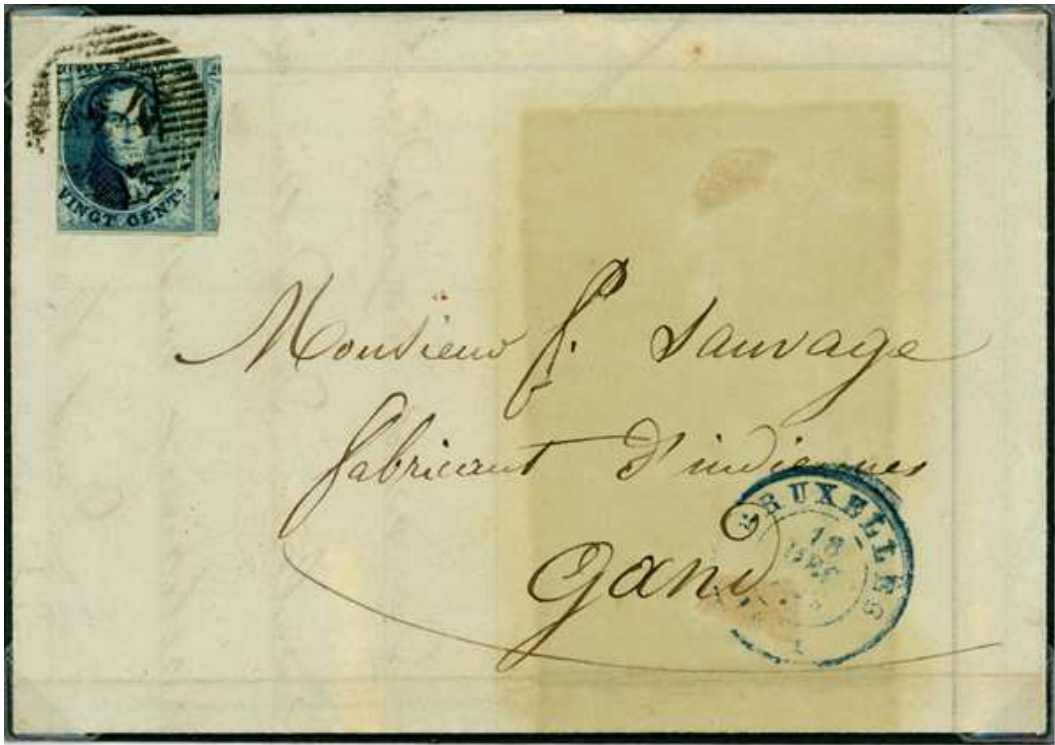 VINGT CENTS.
Monsieur f. Sauvage
fabricant d'indiennes
Gand
BRUXELLES
18
DEC